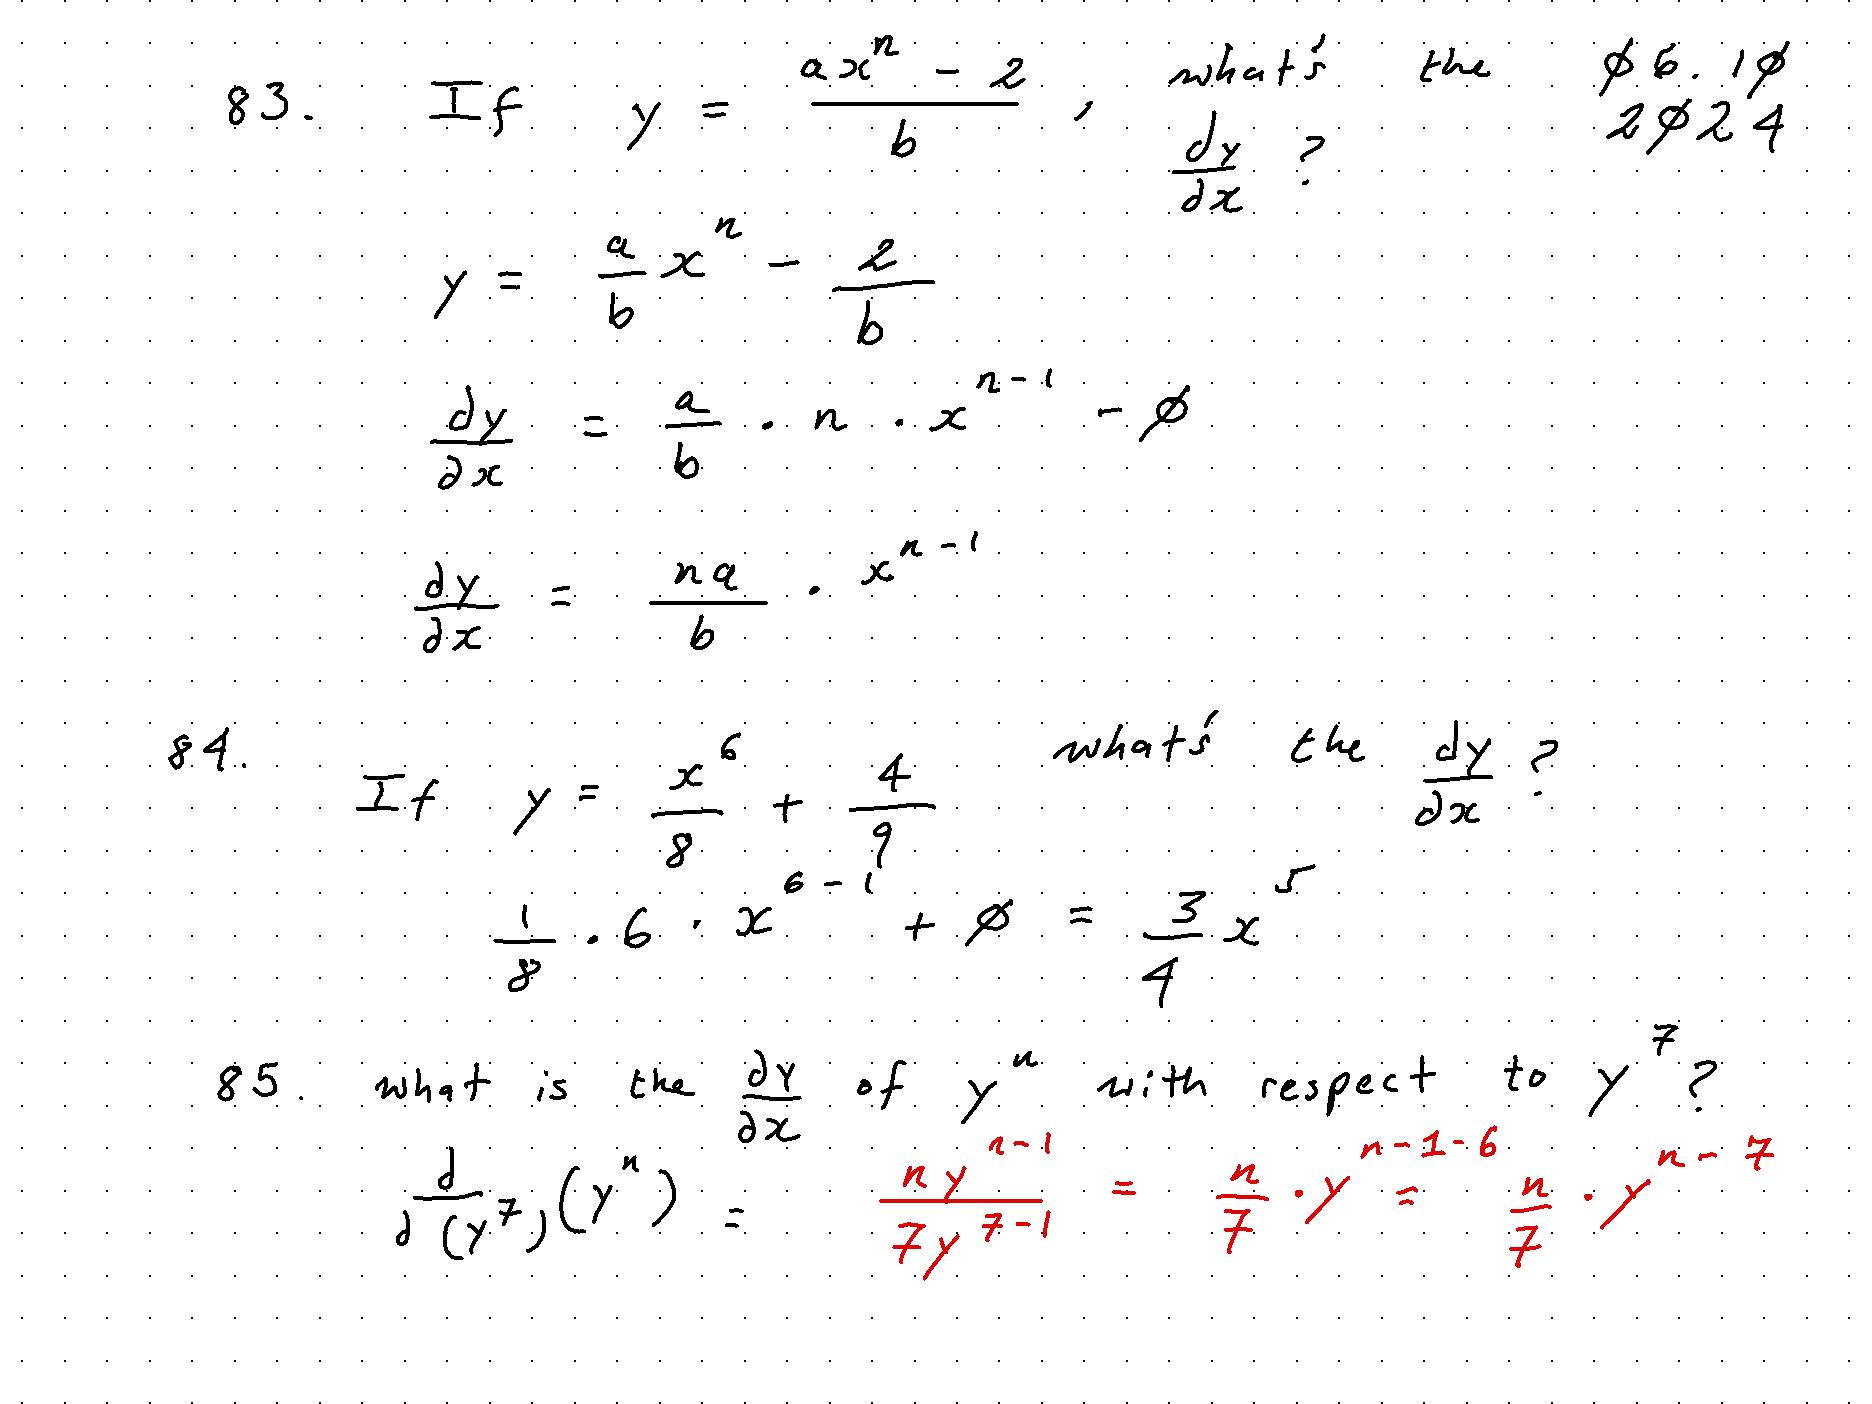 83. If y = (ax^n - 2)/b , what's the dy/dx ? 06.10 2024
y = a/b x^n - 2/b
dy/dx = a/b · n · x^(n-1) - 0
dy/dx = na/b · x^(n-1)
84. If y = x^6/8 + 4/9 what's the dy/dx ?
1/8 · 6 · x^(6-1) + 0 = 3/4 x^5
85. what is the dy/dx of y^n with respect to y^7 ?
d/d(y^7) (y^n) = ny^(n-1)/7y^(7-1) = n/7 · y^(n-1-6) = n/7 · y^(n-7)